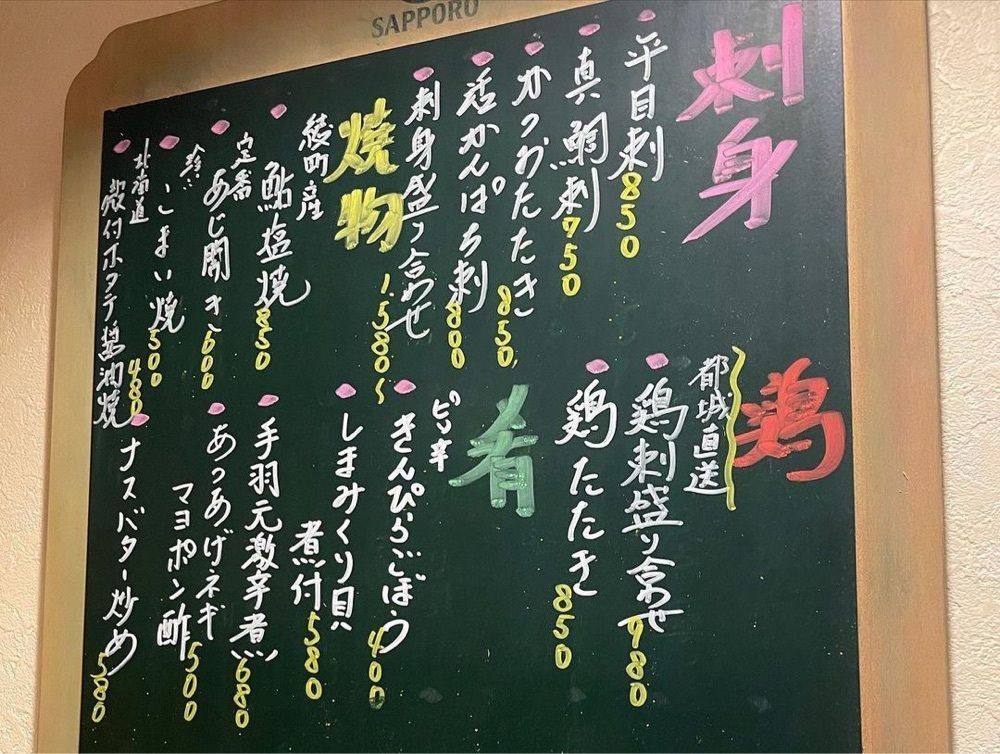 SAPPORO
刺身
平目刺 850
真鯛刺 750
かつおたたき 850
活かんぱち刺 800
刺身盛り合わせ 1,580〜
焼物
綾町産
鮎塩焼 850
定番
あじ開き 600
こまい焼 500
北海道
殻付ホタテ醤油焼 480
鶏
都城直送
鶏刺盛り合わせ 980
鶏たたき 850
肴
ピリ辛
きんぴらごぼう 400
しまみくり貝
煮付 580
手羽元激辛煮 680
あつあげネギ
マヨポン酢 500
ナスバター炒め 580